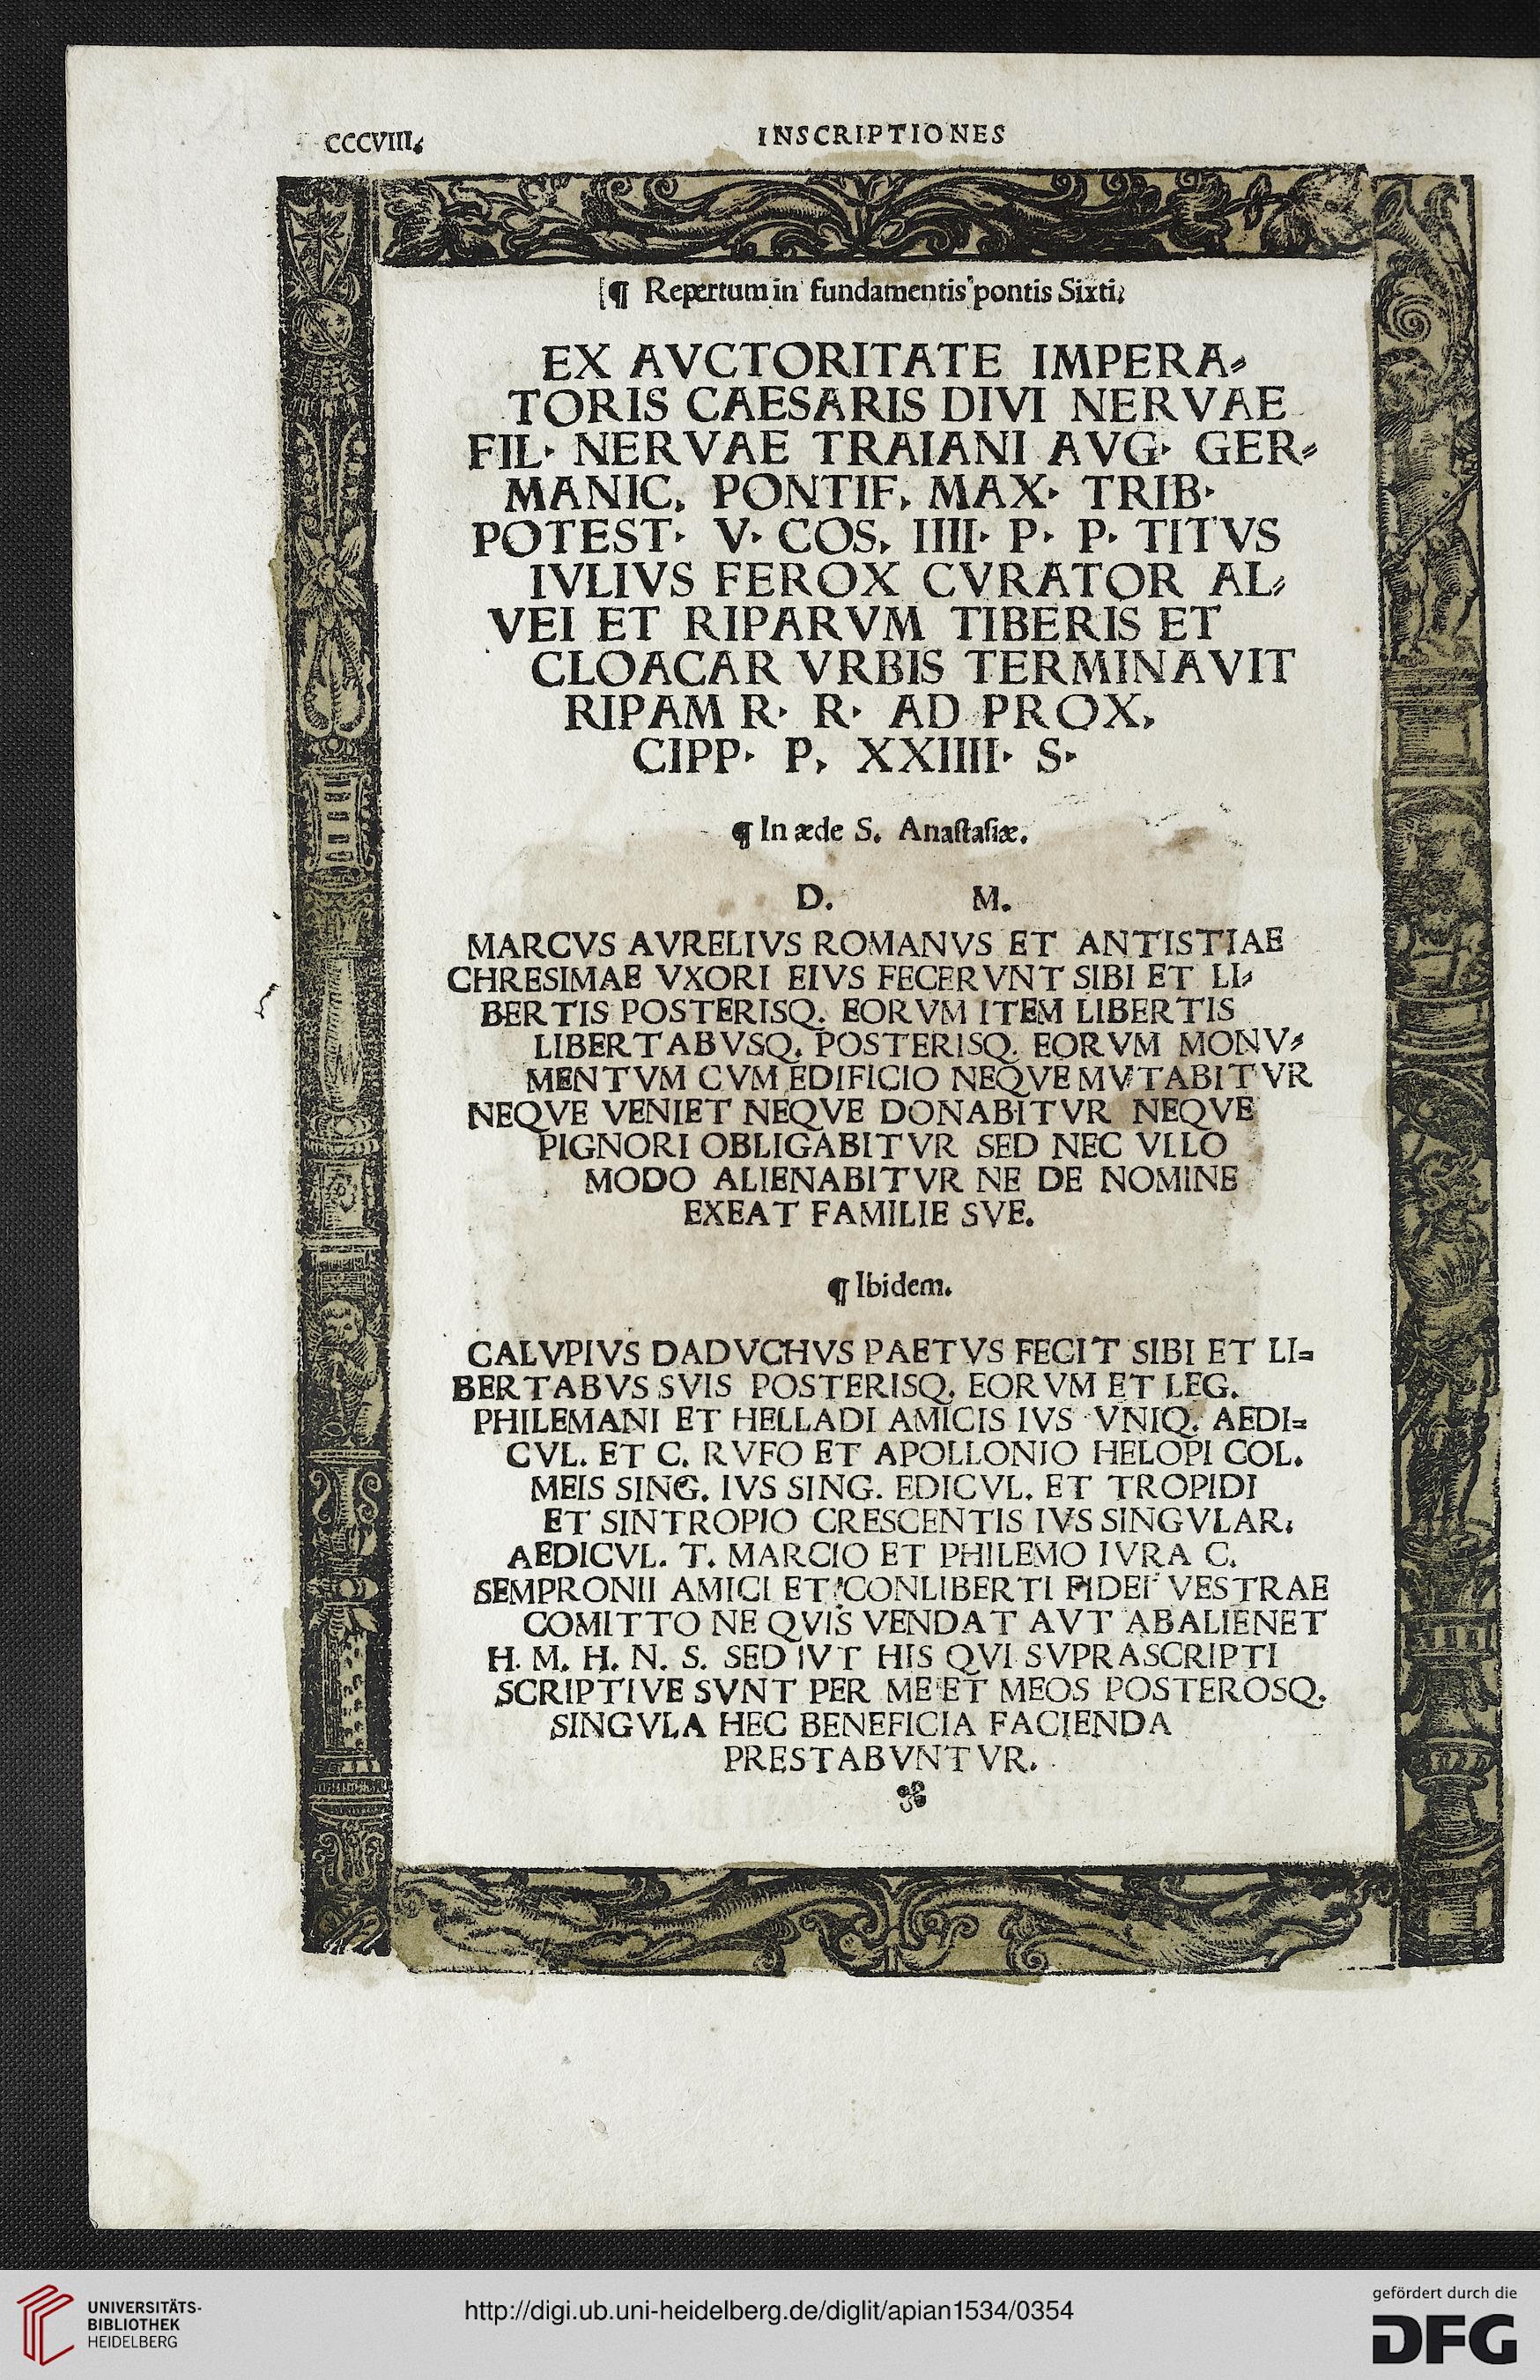 CCCVIII.
INSCRIPTIONES
[¶ Repertum in fundamentis pontis Sixti;
EX AVCTORITATE IMPERA⸗
TORIS CAESARIS DIVI NERVAE
FIL· NERVAE TRAIANI AVG· GER⸗
MANIC, PONTIF, MAX· TRIB·
POTEST· V· COS, IIII· P· P· TITVS
IVLIVS FEROX CVRATOR AL⸗
VEI ET RIPARVM TIBERIS ET
CLOACAR VRBIS TERMINAVIT
RIPAM R· R· AD PROX,
CIPP· P, XXIIII· S·
¶ In æde S. Anaſtaſiæ.
D. M.
MARCVS AVRELIVS ROMANVS ET ANTISTIAE
CHRESIMAE VXORI EIVS FECERVNT SIBI ET LI⸗
BERTIS POSTERISQ. EORVM ITEM LIBERTIS
LIBERTABVSQ. POSTERISQ. EORVM MONV⸗
MENTVM CVM EDIFICIO NEQVE MVTABITVR
NEQVE VENIET NEQVE DONABITVR NEQVE
PIGNORI OBLIGABITVR SED NEC VLLO
MODO ALIENABITVR NE DE NOMINE
EXEAT FAMILIE SVE.
¶ Ibidem.
CALVPIVS DADVCHVS PAETVS FECIT SIBI ET LI⸗
BERTABVS SVIS POSTERISQ. EORVM ET LEG.
PHILEMANI ET HELLADI AMICIS IVS VNIQ. AEDI⸗
CVL. ET C. RVFO ET APOLLONIO HELOPI COL.
MEIS SING. IVS SING. EDICVL. ET TROPIDI
ET SINTROPIO CRESCENTIS IVS SINGVLAR.
AEDICVL. T. MARCIO ET PHILEMO IVRA C.
SEMPRONII AMICI ET CONLIBERTI FIDEI VESTRAE
COMITTO NE QVIS VENDAT AVT ABALIENET
H. M. H. N. S. SED IVT HIS QVI SVPRASCRIPTI
SCRIPTIVE SVNT PER ME ET MEOS POSTEROSQ.
SINGVLA HEC BENEFICIA FACIENDA
PRESTABVNTVR.
UNIVERSITÄTS-
BIBLIOTHEK
HEIDELBERG
http://digi.ub.uni-heidelberg.de/diglit/apian1534/0354
gefördert durch die
DFG